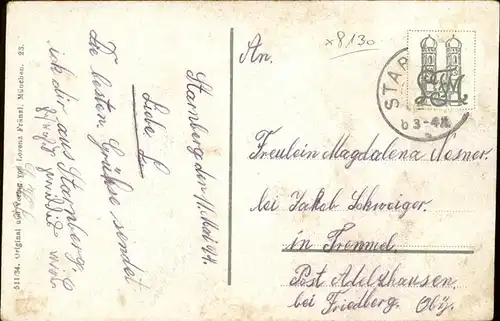 x 8130
STAR
b 3-4N
An.
Freulein Magdalena Nesner
bei Jakob Schweiger.
in Tremmel
Post Adelzhausen
bei Friedberg. Oby.
Starnberg den 11. Mai 44.
Liebe L
Die besten Grüße sendet
ich dir aus Starnberg.
511/34. Original und Verlag von Lorenz Fränzl, München. 23.